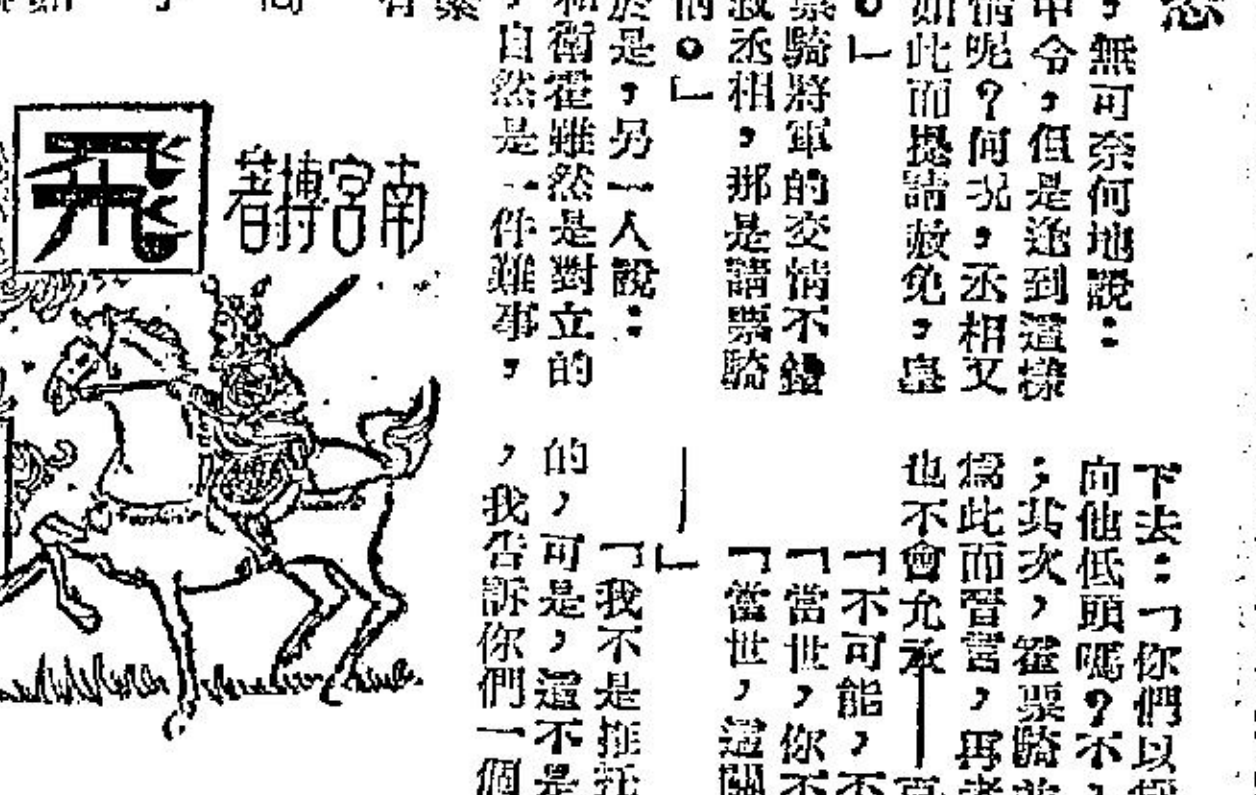 ，無可奈何地說：
中令，但是逢到這樣
情呢？何况，丞相又
如此而提請赦免，皇
。」
票騎將軍的交情不錯
丞相，那是請票騎
。」
於是，另一人說：
和衛霍雖然是對立的
，自然是一件難事，
南宮搏著
飛
下去：「你們以
向他低頭嗎？不，
；其次，霍票騎並
爲此而晉言，再者
也不會允承——
「不可能，不
「當世，你不
「當世，這關
——」
「我不是推託
的，可是，還不是
，我告訴你們一個